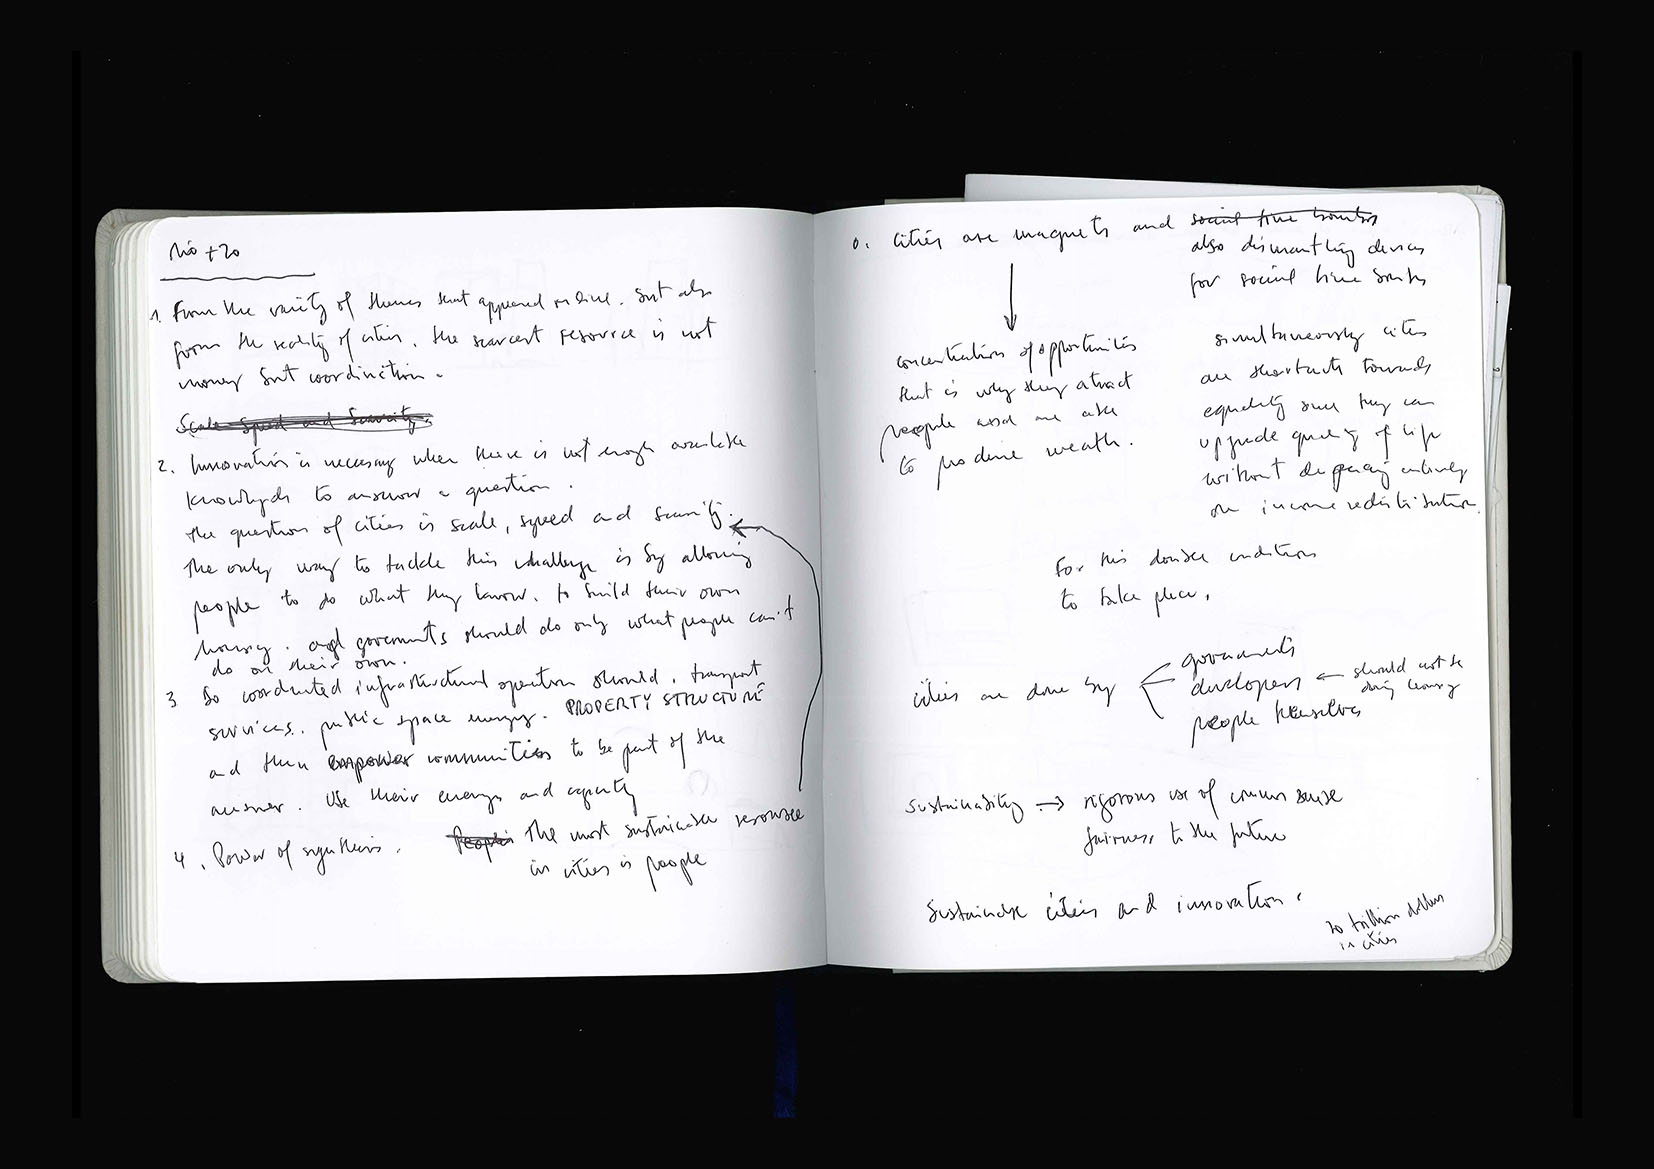 Rio +20
1. From the variety of themes that appeared online. but also
from the reality of cities, the scarcest resource is not
money but coordination.
Scale speed and scarcity.
2. Innovation is necessary when there is not enough available
knowledge to answer a question.
the question of cities is scale, speed and scarcity.
the only way to tackle this challenge is by allowing
people to do what they know. to build their own
housing. and governments should do only what people can't
do on their own.
3 So coordinated infrastructural operation should. transport
services. public space energy. PROPERTY STRUCTURE
and then empower communities to be part of the
answer. Use their energy and capacity
4. Power of synthesis. People The most sustainable resource
in cities is people
0. cities are magnets and social time bombs
also dismantling devices
for social time bombs
concentration of opportunities
that is why they atract
people and are able
to produce wealth.
simultaneously cities
are shortcuts towards
equality since they can
upgrade quality of life
without depending entirely
on income redistribution.
For this double condition
to take place,
cities are done by
governments
developers
people themselves
should not be
doing housing
sustainability → rigorous use of common sense
fairness to the future
Sustainable cities and innovation.
20 trillion dollars
in cities